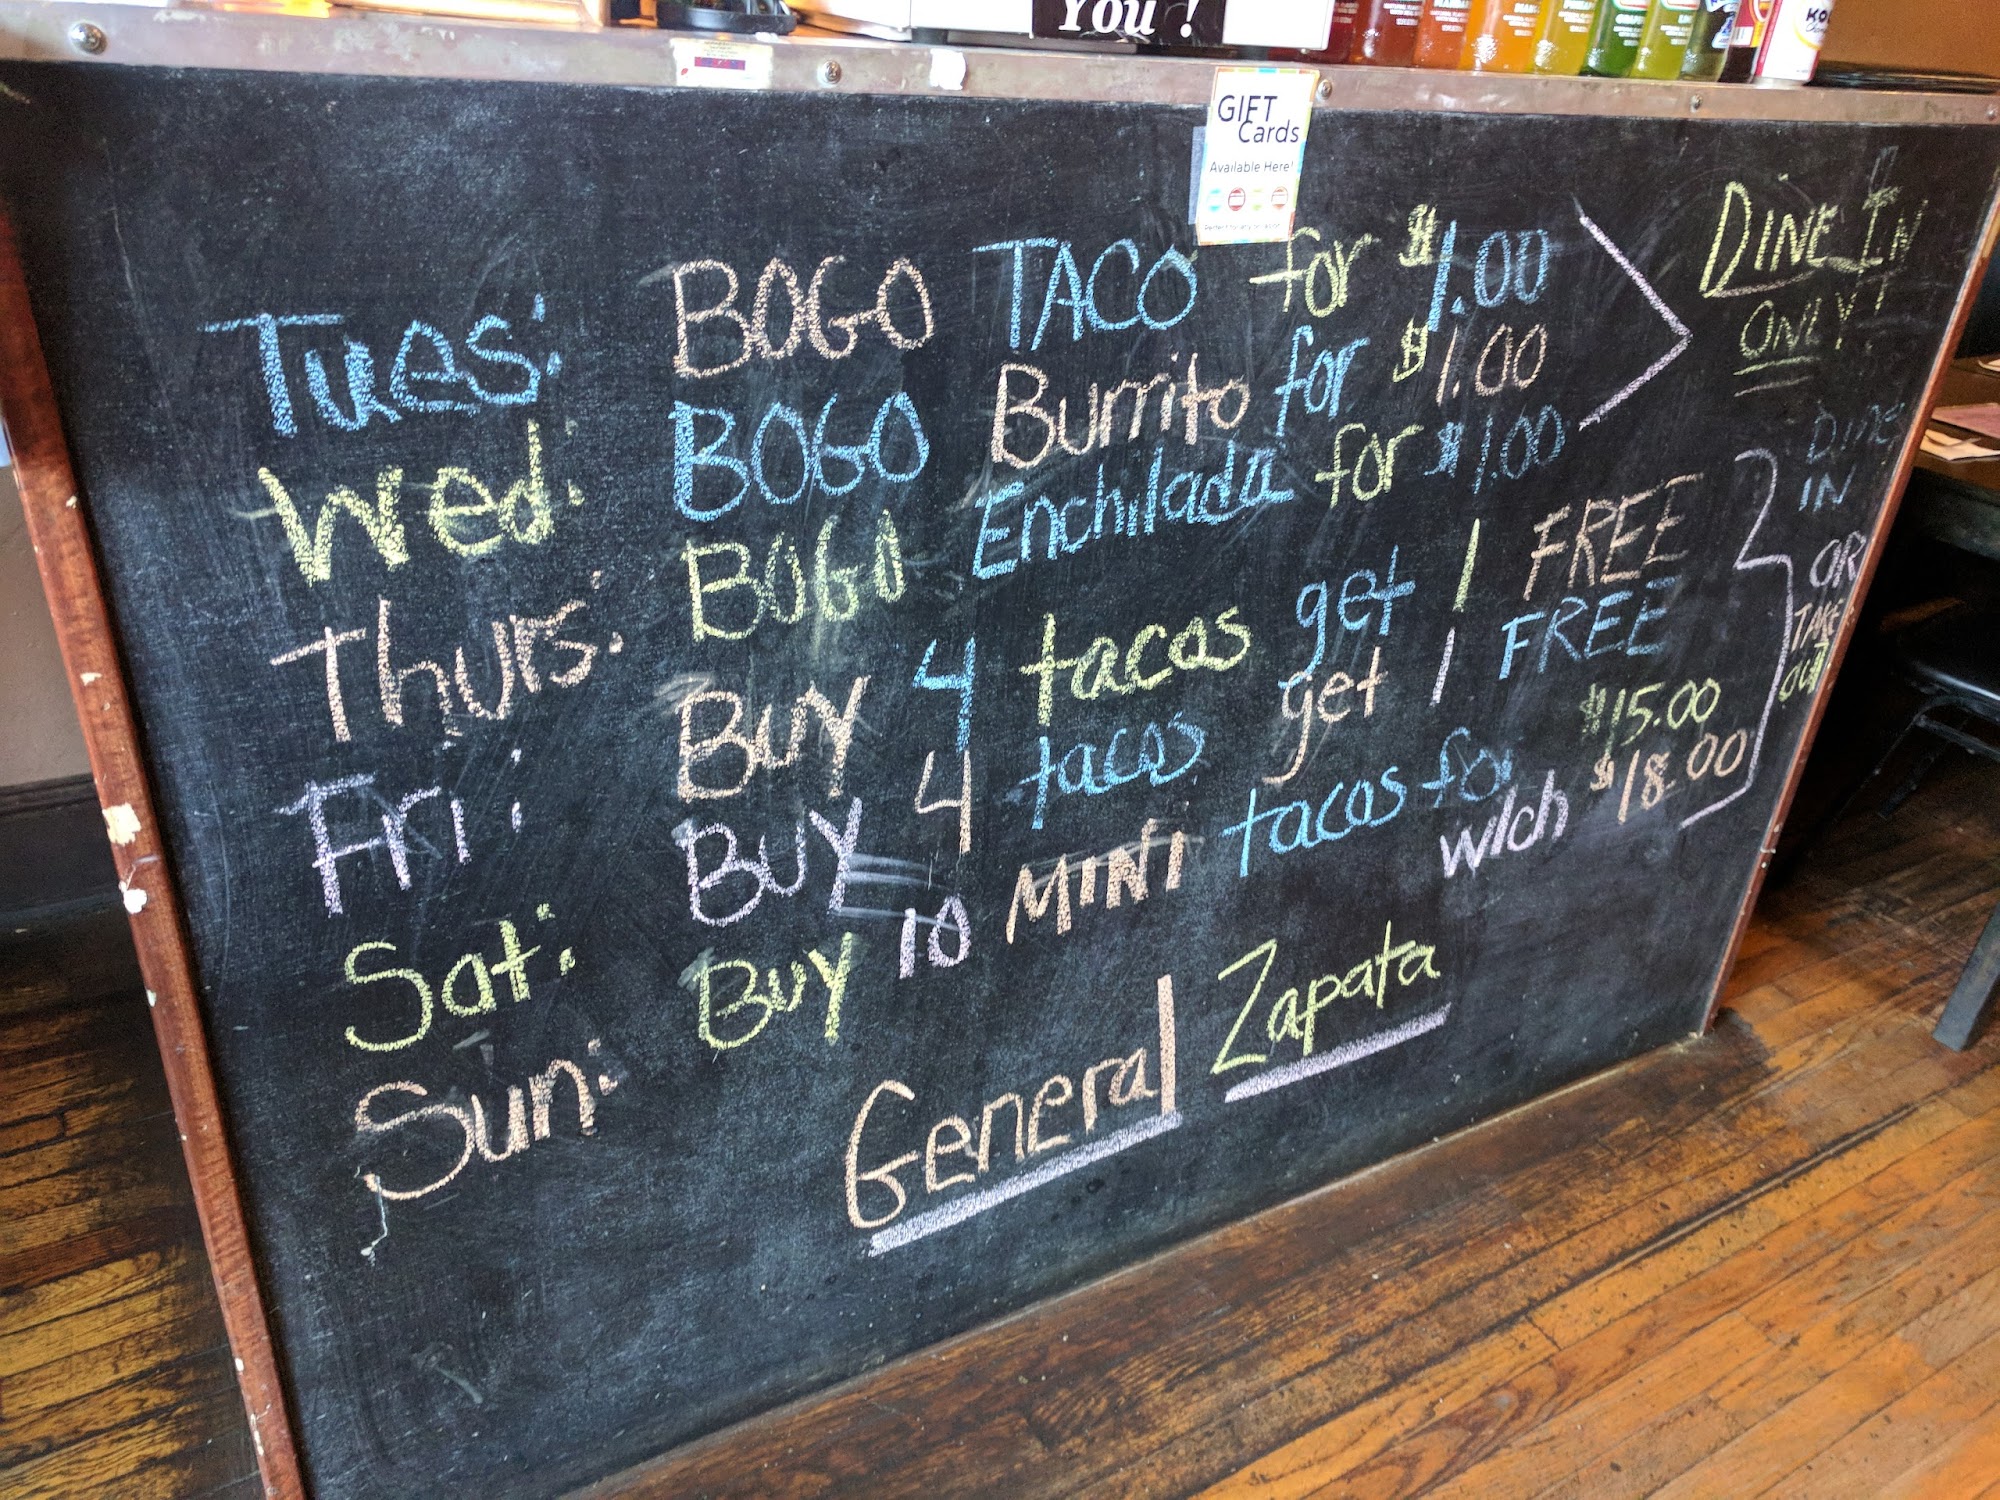 You!
GIFT
Cards
Available Here!
Tues: BOGO TACO for $1.00
Wed: BOGO Burrito for $1.00
Thurs: BOGO Enchilada for $1.00
DINE IN
ONLY!
Fri: BUY 4 tacos get 1 FREE
Sat: BUY 4 tacos get 1 FREE
Sun: BUY 10 MINI tacos for $15.00
w/ch $18.00
DINE
IN
OR
TAKE
OUT
General Zapata